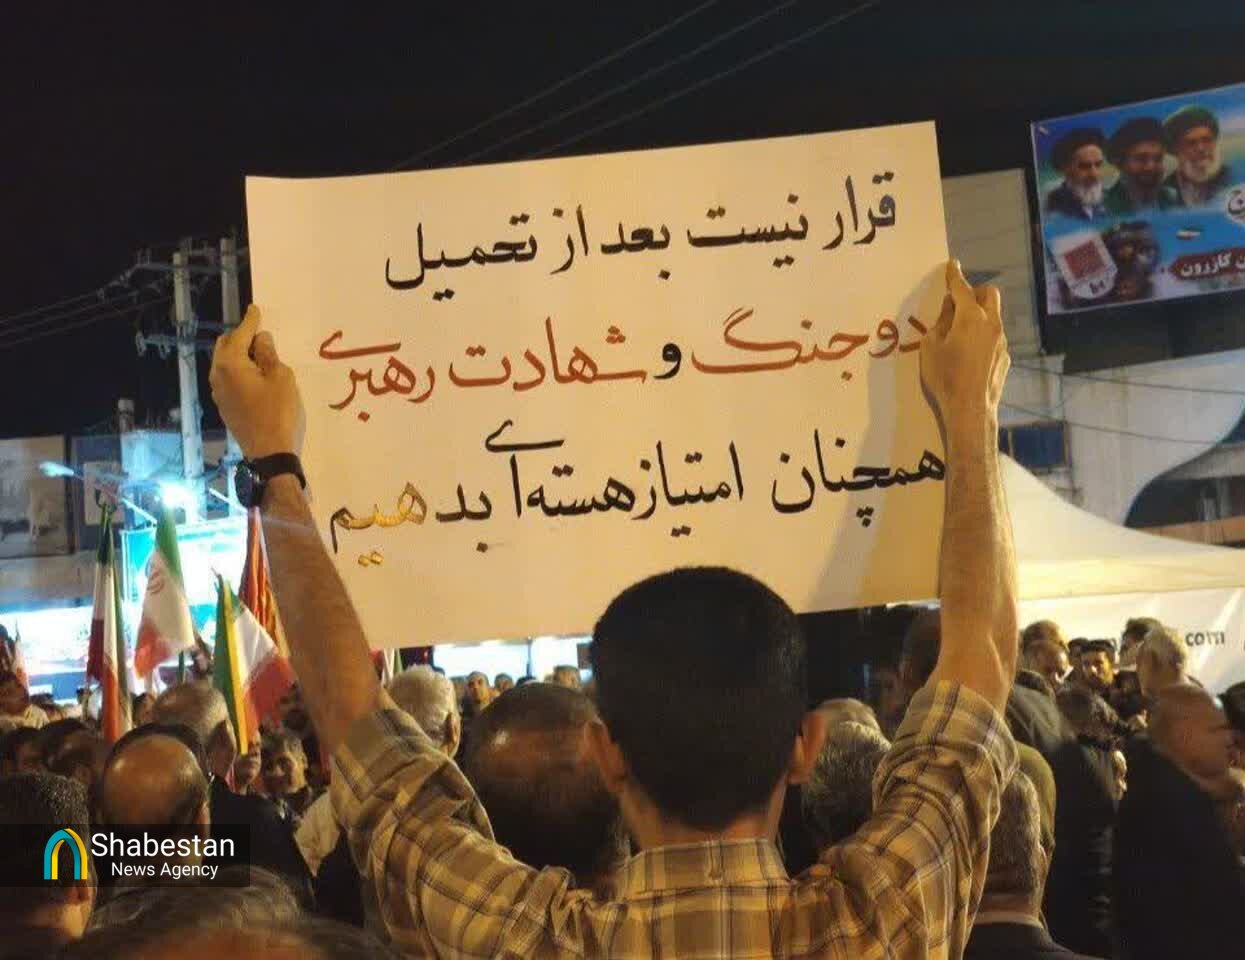 قرار نیست بعد از تحمیل
دو جنگ و شهادت رهبری
همچنان امتیاز هسته‌ای بدهیم
کازرون
.com
Shabestan
News Agency